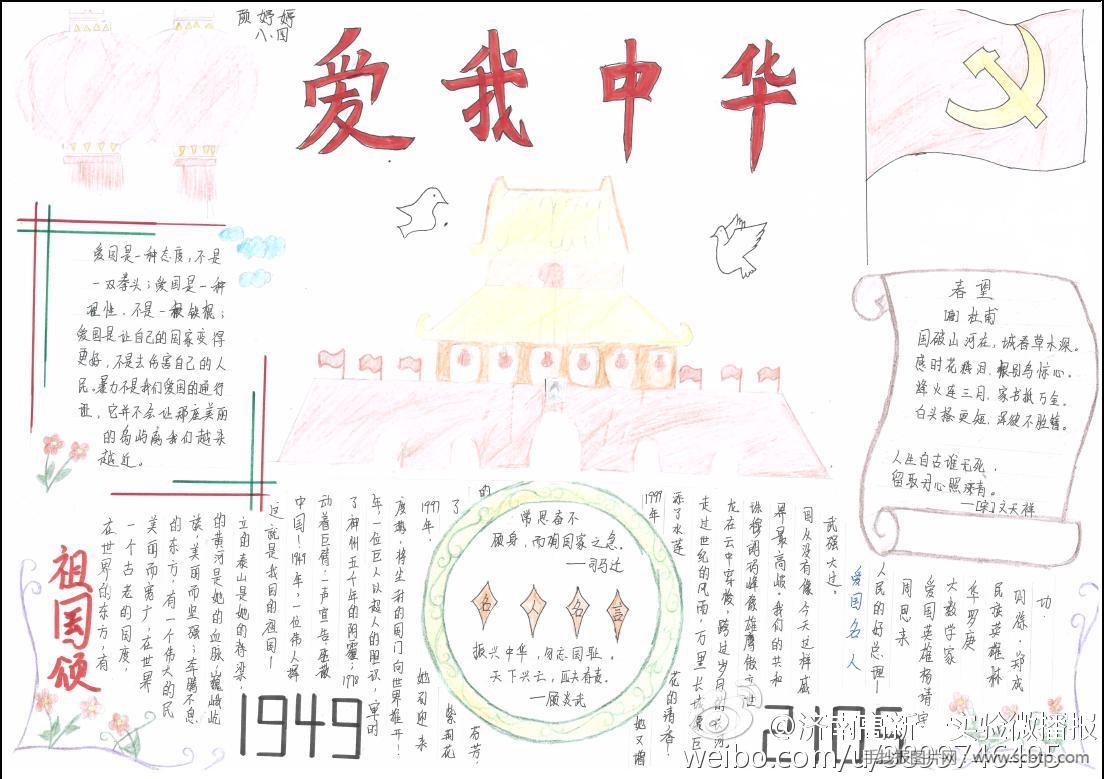 顾婷婷
八、四
爱我中华
爱国是一种态度,不是
一双拳头;爱国是一种
理性,不是一根铁棍;
爱国是让自己的国家变得
更好,不是去伤害自己的人
民。暴力不是我们爱国的通行
证,它并不会让那座美丽
的岛屿离我们越来
越近。
春望
杜甫
国破山河在,城春草木深。
感时花溅泪,恨别鸟惊心。
烽火连三月,家书抵万金。
白头搔更短,浑欲不胜簪。
人生自古谁无死,
留取丹心照汗青。
文天祥
祖国颂
在世界的东方,有
一个古老的国度,
美丽而宽广,在世界
的东方,有一个伟大的民
族,美丽而坚强;奔腾不息
的黄河是她的血脉,巍峨屹
立的泰山是她的脊梁,
这就是我的祖国—
中国!1949年,一位伟人挥
动着巨臂,一声宣告
了神州五千年的阴霾;1978
年,一位巨人以超人的胆识,
将尘封的国门向世界敞开!
1997年,
她迎来
了
紫荆花
的
芬芳,
常思奋不
顾身,而殉国家之急。
——司马迁
名人名言
振兴中华,勿忘国耻。
天下兴亡,匹夫有责。
——顾炎武
1999年
她又增
添了水莲
花的清香!
走过世纪的风雨,万里长城像巨
龙在云中穿梭,跨过岁月的
珠穆朗玛峰像雄鹰傲立
世界最高峻。我们的共和
国从没有像今天这样盛
武强大过。
爱国名人
人民的好总理—
周恩来
爱国英雄杨靖宇
大数学家
华罗庚
民族英雄林
则徐、郑成
功
1949
@济南高新一实验微播报
手抄报图片网 www.scbtp.com